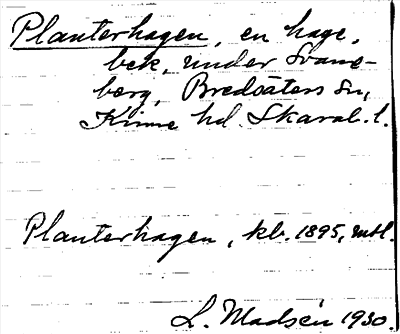 Planterhagen, en hage,
bek, under Svane-
berg, Bredsäters sn,
Kinne hd. Skarab. l.
Planterhagen, kb. 1895, mtl.
L. Madsén 1930.